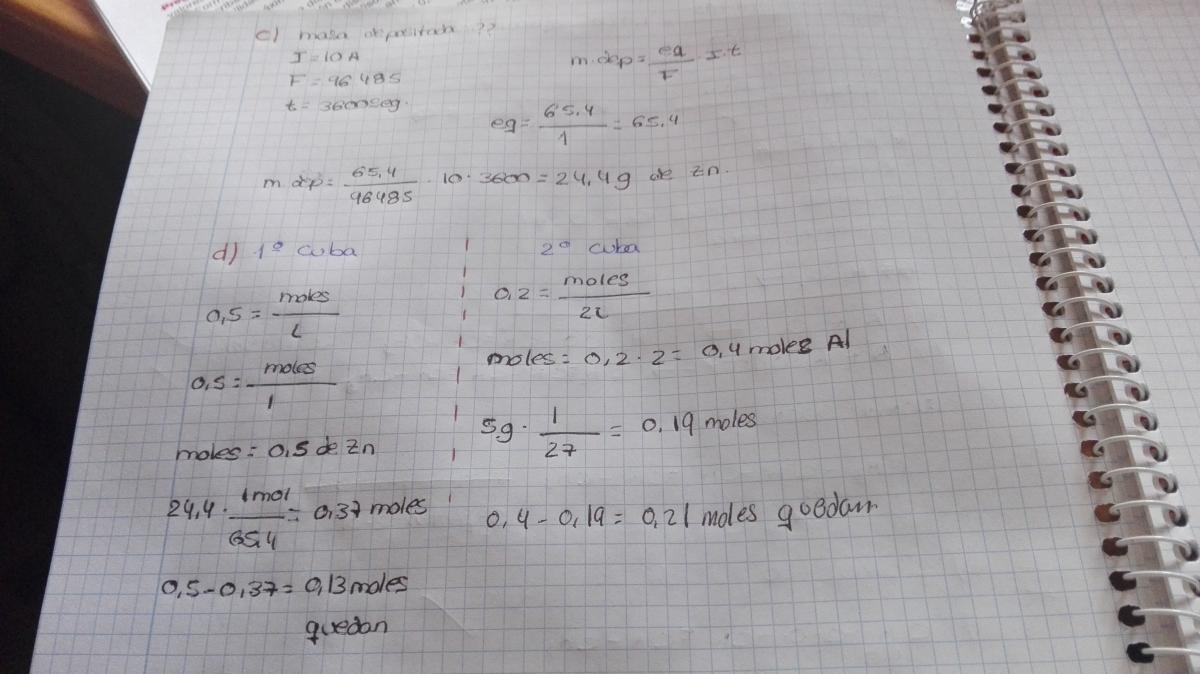 c) masa depositada ??
I = 10 A
F = 96485
t = 3600 seg.
m.dep = eq/F · I·t
eq = 65,4/1 = 65,4
m.dep = 65,4/96485 · 10 · 3600 = 24,4g de Zn.
d) 1º cuba
0,5 = moles/L
0,5 = moles/1
moles = 0,5 de Zn
24,4 · 1mol/65,4 = 0,37 moles
0,5 - 0,37 = 0,13 moles
quedan
2º cuba
0,2 = moles/2L
moles = 0,2 · 2 = 0,4 moles Al
5g · 1/27 = 0,19 moles
0,4 - 0,19 = 0,21 moles quedan